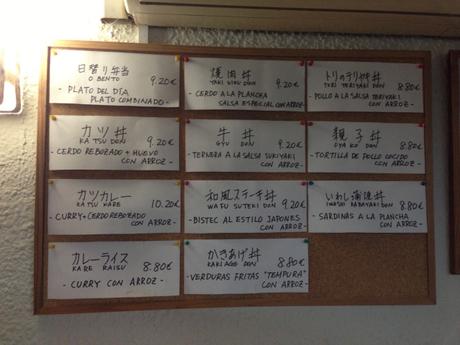 日替り弁当
O BENTO 9.20€
- PLATO DEL DÍA
PLATO COMBINADO -
焼肉丼
YAKI NIKU DON 9.20€
- CERDO A LA PLANCHA
SALSA ESPECIAL CON ARROZ -
トリのテリヤキ丼
TORI TERIYAKI DON 8.80€
- POLLO A LA SALSA TERIYAKI -
CON ARROZ
カツ丼
KA TSU DON 9.20€
- CERDO REBOZADO + HUEVO
CON ARROZ -
牛丼
GYU DON 9.20€
- TERNERA A LA SALSA SUKIYAKI
CON ARROZ -
親子丼
OYA KO DON 8.80€
- TORTILLA DE POLLO COCIDO
CON ARROZ -
カツカレー
KA TSU KARE 10.20€
- CURRY + CERDO REBOZADO
CON ARROZ -
和風ステーキ丼
WAFU SUTEKI DON 9.20€
- BISTEC AL ESTILO JAPONES
CON ARROZ -
いわし蒲焼丼
IWASHI KABAYAKI DON 8.80€
- SARDINAS A LA PLANCHA
CON ARROZ -
カレーライス
KARE RAISU 8.80€
- CURRY CON ARROZ -
かきあげ丼
KAKI AGE DON 8.80€
- VERDURAS FRITAS "TEMPURA"
CON ARROZ -